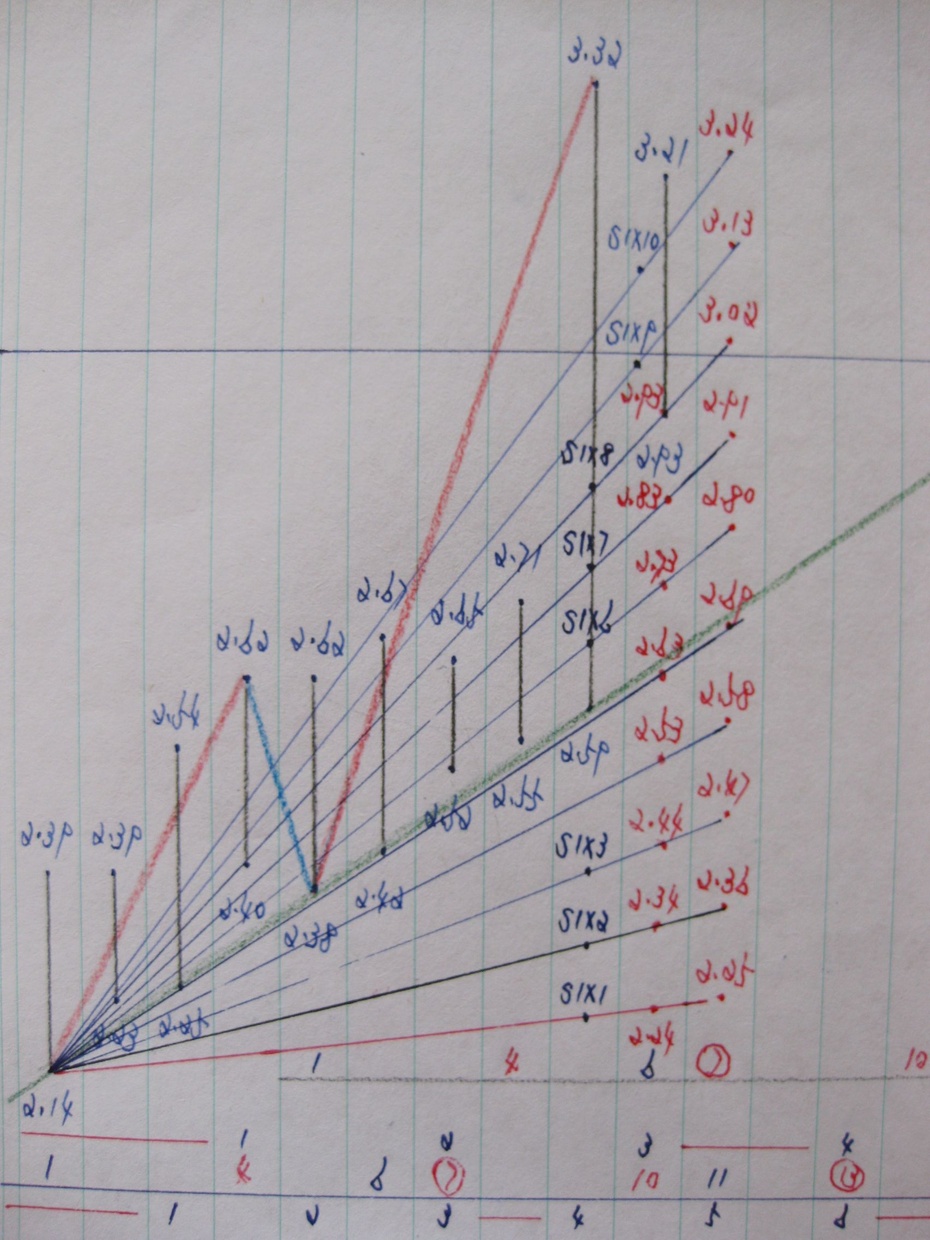 3.32
3.24
3.21
3.13
S1X10
3.02
S1X9
2.93
2.91
S1X8
2.93
2.83
2.80
S1X7
2.71
2.73
2.67
2.69
2.65
S1X6
2.62
2.62
2.63
2.58
2.54
2.59
2.53
2.55
2.47
2.52
2.44
2.39
2.39
S1X3
2.42
2.36
2.40
2.34
2.38
S1X2
2.25
S1X1
2.23
2.25
2.24
1
4
6
7
10
2.14
1
2
3
4
1
4
6
7
10
11
13
1
2
3
4
5
6